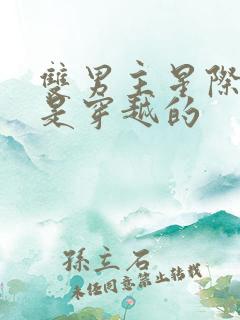 雙男主星際
是穿越的
孫立石
未经同意禁止转载